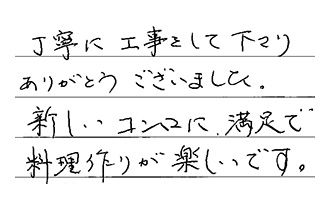 丁寧に工事をして下さり
ありがとうございました。
新しいコンロに満足で
料理作りが楽しいです。